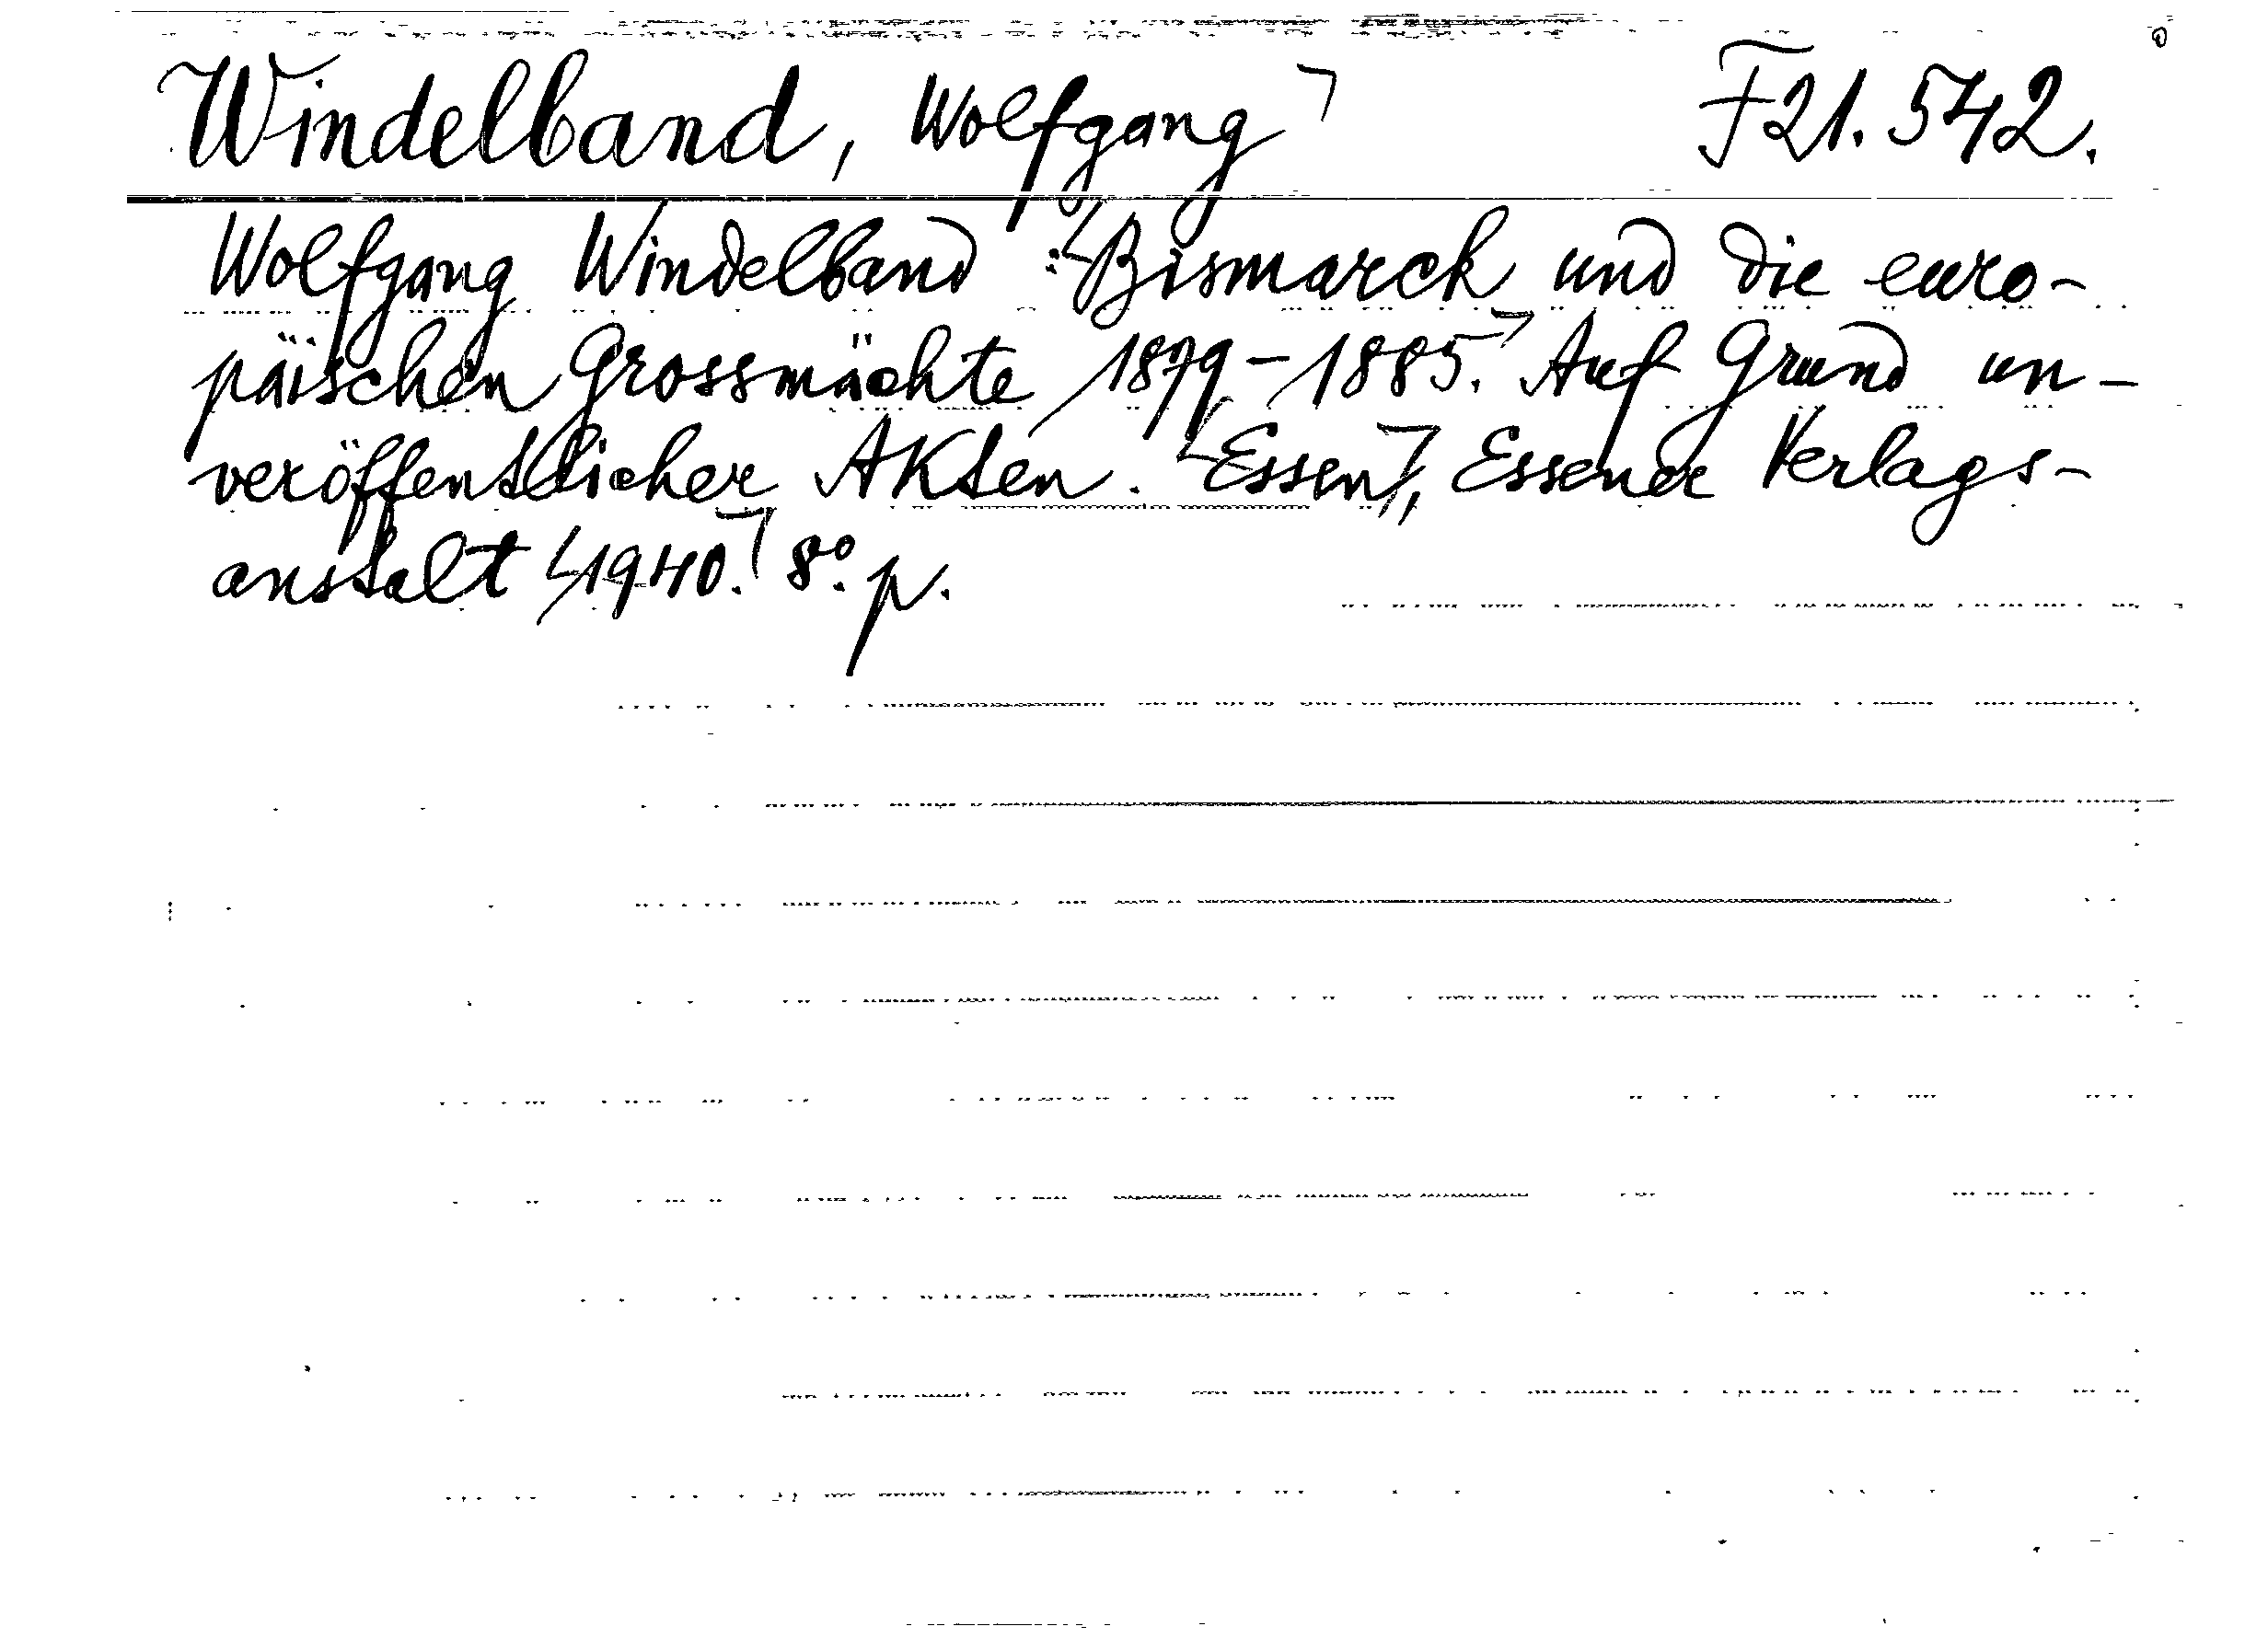 Windelband, Wolfgang F21.542.
Wolfgang Windelband : Bismarck und die euro-
päischen Grossmächte 1879-1885. Auf Grund un-
veröffentlicher Akten. Essen, Essener Verlags-
anstalt 1940. 8°. p.